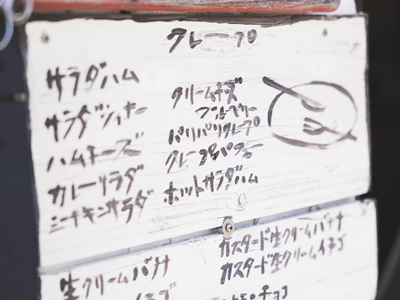 クレープ
サラダハム
サラダツナー
ハムチーズ
カレーサラダ
ミートチキンサラダ
クリームチーズ
ブルーベリー
パリパリクレープ
クレープパフェ
ホットサラダハム
生クリームバナナ
カスタード生クリームバナナ
カスタード生クリームイチゴ
イチゴ
チョコ